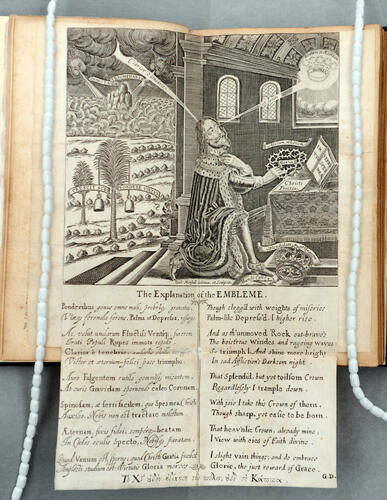 IMMOTA TRIUMPHANS
Clarior é tenebris
CRESCIT SUB PONDERE VIRTUS
Christi Tractat
Guil. Marshall Sculpsit.
The Explanation of the EMBLEME.
Ponderibus genus omne mali, probris gravatus,
Vixq; ferenda ferens, Palma ut Depressa, resurgo.
Ac, velut undarum Fluctûs Ventiq; furorem
Irati Populi Rupes immota repello.
Clarior é tenebris, coelestis stella, corusco.
Victor et aeternum-felici pace triumpho.
Auro Fulgentem rutilo gemmisq; micantem,
At curis Gravidam spernendo calco Coronam.
Spinosam, at ferri facilem, quo Spes mea, Christi
Auxilio, Nobis non est tractare molestum.
Aeternam, fixis fidei, semperq;-beatam
In Coelos oculis Specto, Nobisq; paratam.
Quod Vanum est, sperno; quod Christi Gratia praebet
Amplecti studium est: Virtutis Gloria merces.
Though clogg'd with weights of miseries
Palm-like Depress'd, I higher rise.
And as th'unmoved Rock out-brave's
The boist'rous Windes and rageing waves
So triumph I. And shine more bright
In sad Affliction's Darksom night.
That Splendid, but yet toilsom Crown
Regardlessly I trample down.
With joie I take this Crown of thorn,
Though sharp, yet easie to be born.
That heav'nlie Crown, already mine,
I View with eies of Faith divine.
I slight vain things; and do embrace
Glorie, the just reward of Grace.
G.D.